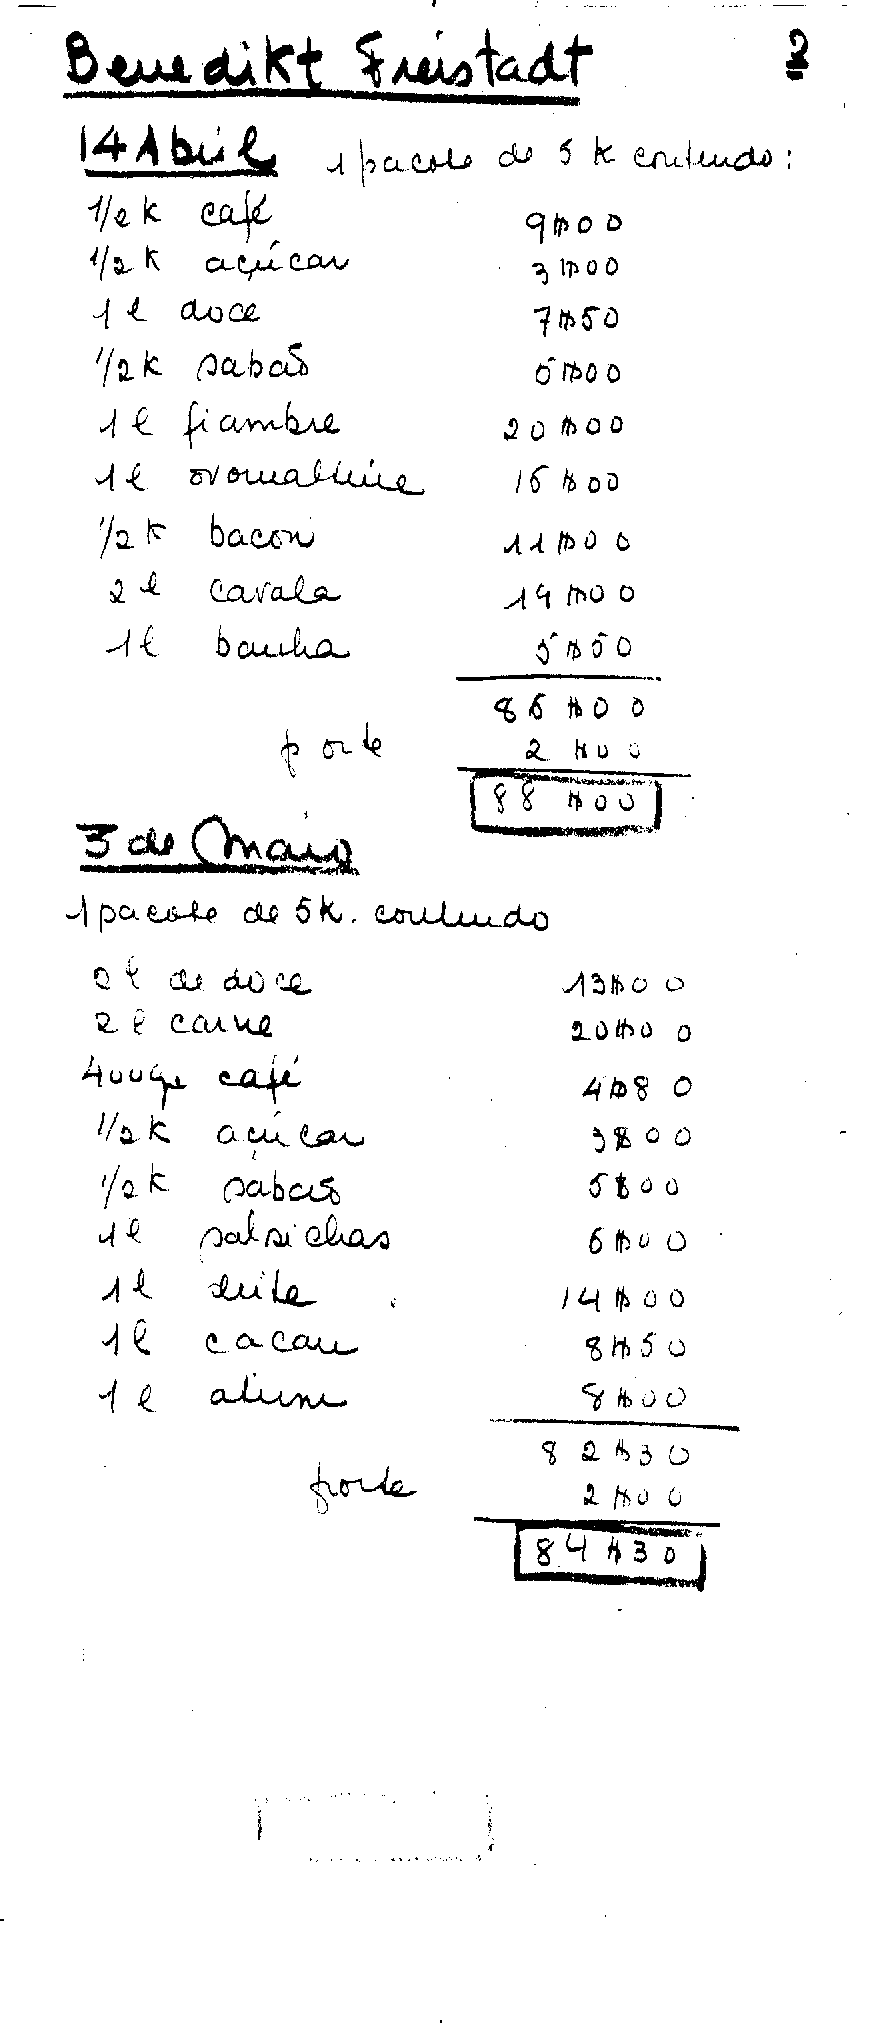 Benedikt Freistadt 2
14 Abril 1 pacote de 5 k contendo:
1/2 k café 9$00
1/2 k açúcar 3$00
1 l doce 7$50
1/2 k sabão 5$00
1 l fiambre 20$00
1 l ovomaltine 16$00
1/2 k bacon 11$00
2 l cavala 19$00
1 l banha 5$50
86$00
porte 2$00
88$00
3 de Maio
1 pacote de 5 k. contendo
2 l de doce 13$00
2 l carne 20$00
400 gr café 4$80
1/2 k açúcar 3$00
1/2 k sabão 5$00
1 l salsichas 6$00
1 l leite 14$00
1 l cacau 8$50
1 l atum 8$00
82$30
porte 2$00
84$30